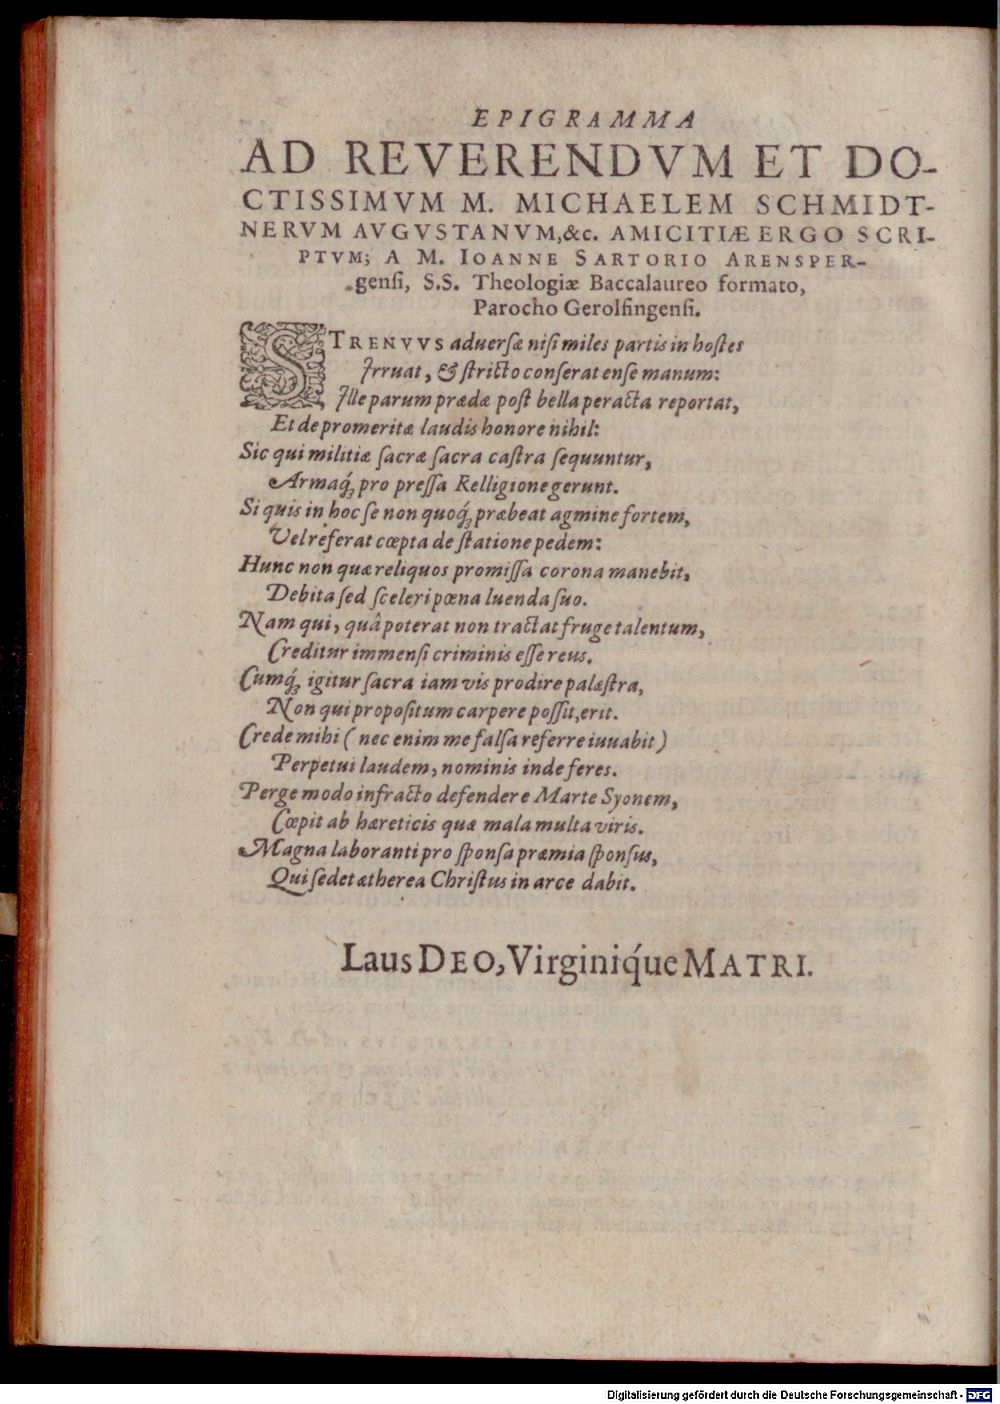 EPIGRAMMA
AD REVERENDVM ET DO-
CTISSIMVM M. MICHAELEM SCHMIDT-
NERVM AVGVSTANVM, &c. AMICITIÆ ERGO SCRI-
PTVM; A M. IOANNE SARTORIO ARENSPER-
genſi, S.S. Theologiæ Baccalaureo formato,
Parocho Gerolfingenſi.
STRENVVS aduerſæ niſi miles partis in hoſtes
Irruat, & ſtricto conſerat enſe manum:
Ille parum prædæ poſt bella peracta reportat,
Et de promeritæ laudis honore nihil:
Sic qui militiæ ſacræ ſacra caſtra ſequuntur,
Armaq́; pro preſſa Relligione gerunt.
Si quis in hoc ſe non quoq́; præbeat agmine fortem,
Vel referat cœpta de ſtatione pedem:
Hunc non quæ reliquos promiſſa corona manebit,
Debita ſed ſceleri pœna luenda ſuo.
Nam qui, quâ poterat non tractat fruge talentum,
Creditur immenſi criminis eſſe reus.
Cumq́; igitur ſacra iam vis prodire palæſtra,
Non qui propoſitum carpere poſſit, erit.
Crede mihi (nec enim me falſa referre iuuabit)
Perpetui laudem, nominis inde feres.
Perge modo infracto defendere Marte Syonem,
Cœpit ab hæreticis quæ mala multa viris.
Magna laboranti pro ſponſa præmia ſponſus,
Qui ſedet ætherea Chriſtus in arce dabit.
Laus DEO, Virginiq́ue MATRI.
Digitalisierung gefördert durch die Deutsche Forschungsgemeinschaft - DFG